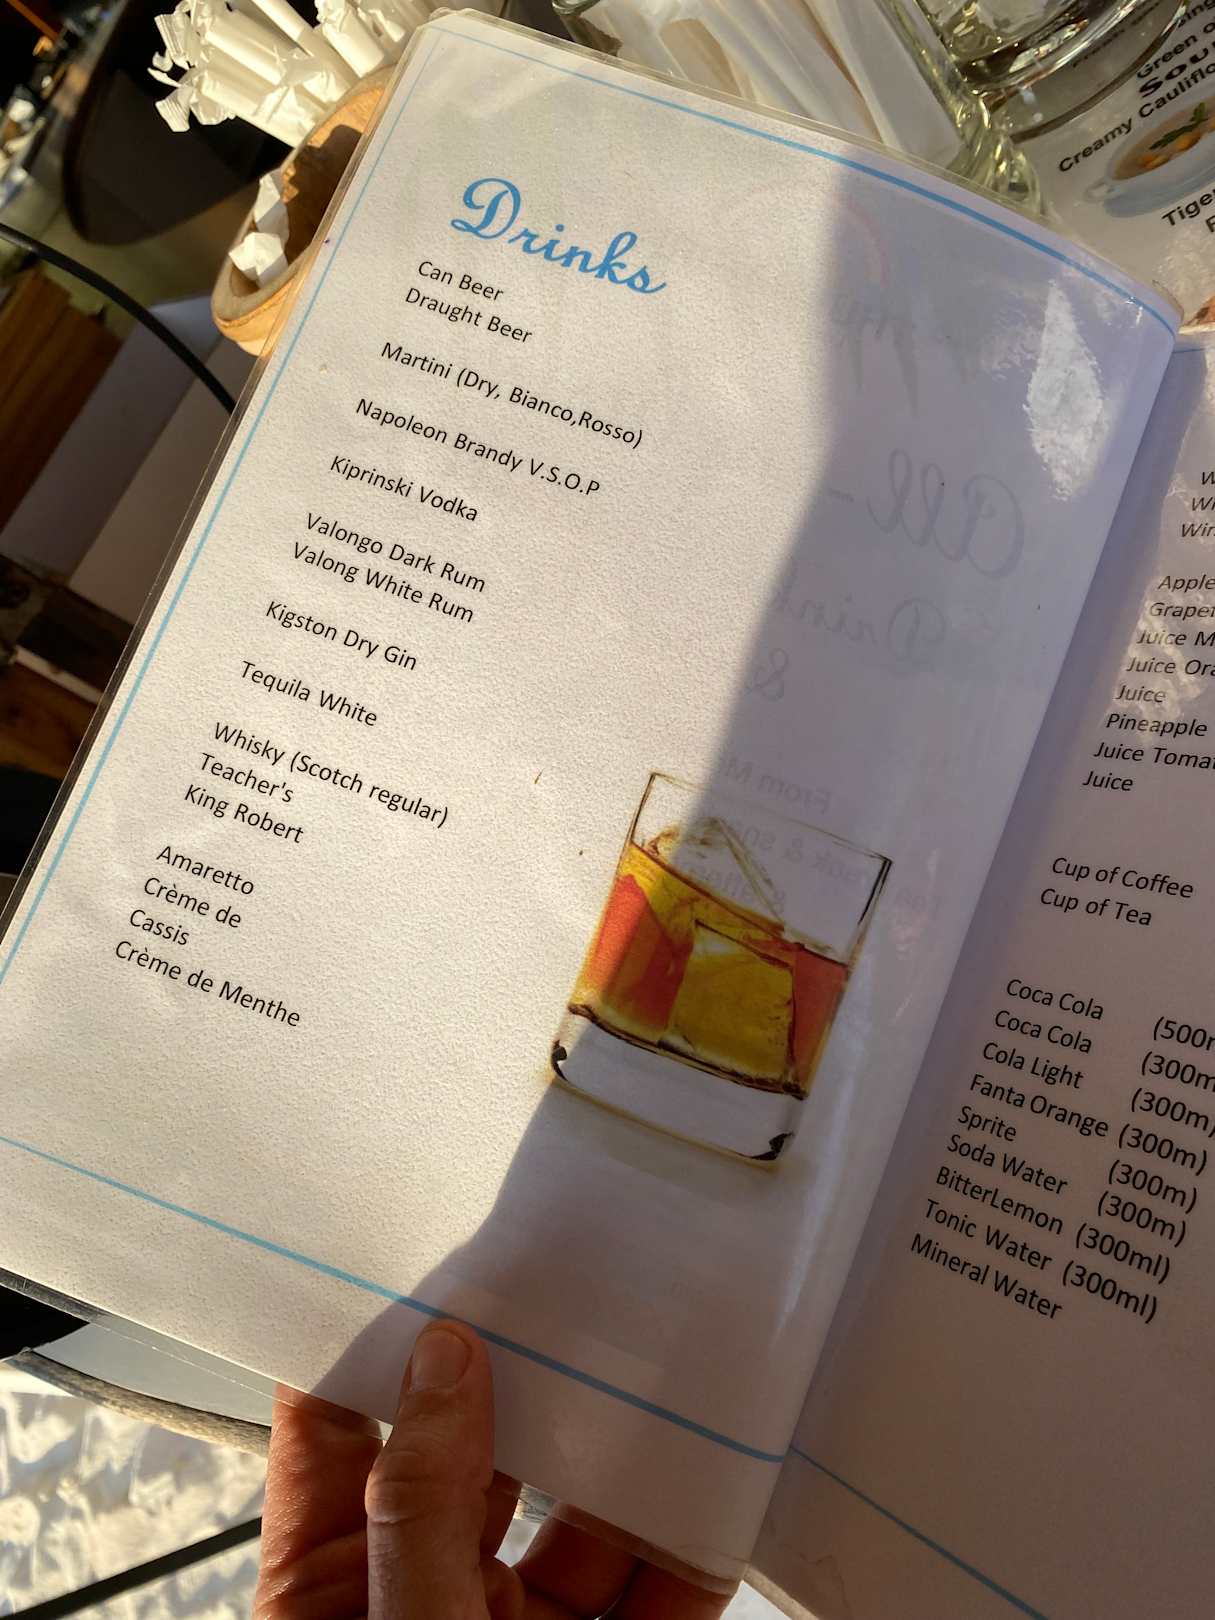 Drinks
Can Beer
Draught Beer
Martini (Dry, Bianco,Rosso)
Napoleon Brandy V.S.O.P
Kiprinski Vodka
Valongo Dark Rum
Valong White Rum
Kigston Dry Gin
Tequila White
Whisky (Scotch regular)
Teacher's
King Robert
Amaretto
Crème de
Cassis
Crème de Menthe
Apple
Juice
Juice
Juice
Pineapple
Juice
Juice
Cup of Coffee
Cup of Tea
Coca Cola
Coca Cola (300m
Cola Light (300m)
Fanta Orange (300m)
Sprite (300m)
Soda Water (300m)
BitterLemon (300ml)
Tonic Water (300ml)
Mineral Water
Green
Creamy